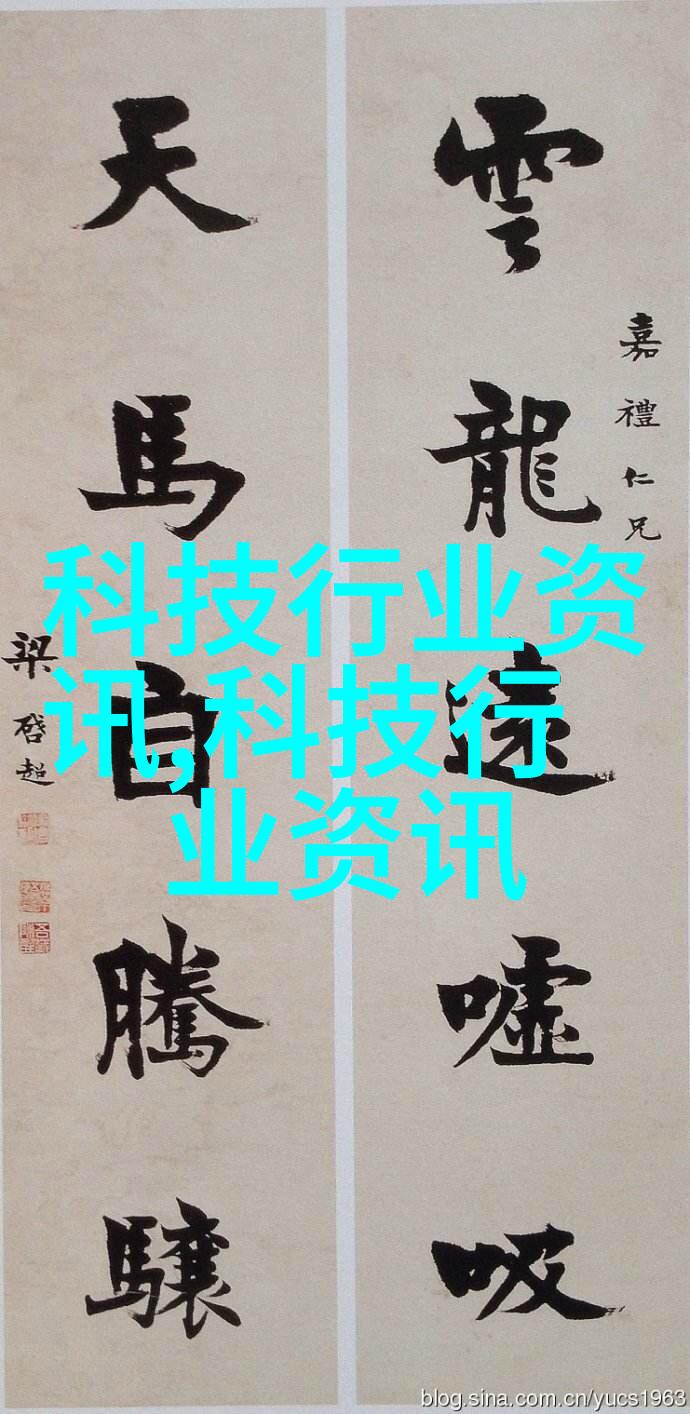 嘉禮仁兄
雲龍遠噓吸
天馬自騰驤
梁啓超
科技行业资
讯,科技行
业资讯
blog.sina.com.cn/yucs1963